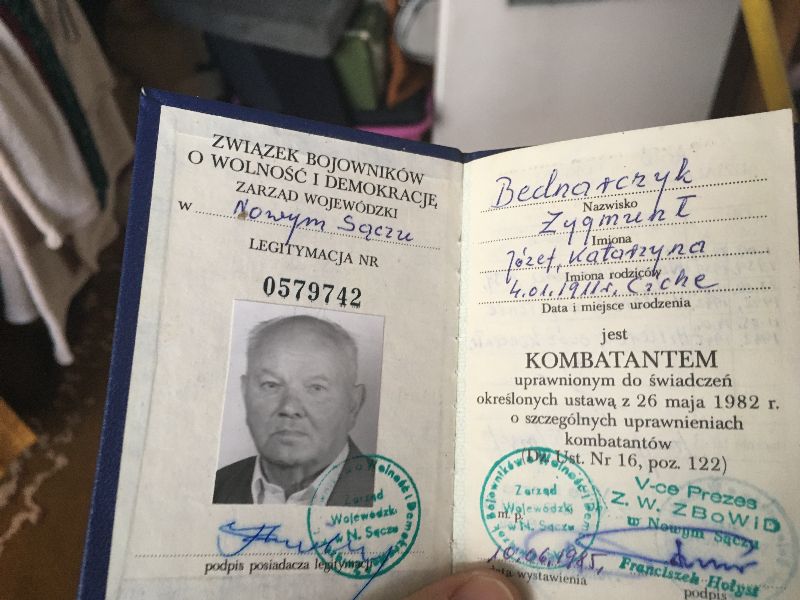 ZWIĄZEK BOJOWNIKÓW
O WOLNOŚĆ I DEMOKRACJĘ
ZARZĄD WOJEWÓDZKI
w Nowym Sączu
LEGITYMACJA NR
0579742
Zarząd
Wojewódzki
w N. Sączu
podpis posiadacza legitymacji
Bednarczyk
Nazwisko
Zygmunt
Imiona
Józef, Katarzyna
Imiona rodziców
4.01.1911r, Ciche
Data i miejsce urodzenia
jest
KOMBATANTEM
uprawnionym do świadczeń
określonych ustawą z 26 maja 1982 r.
o szczególnych uprawnieniach
kombatantów
(Dz. Ust. Nr 16, poz. 122)
Zarząd
Wojewódzki
w N. Sączu
m. p.
V-ce Prezes
Z. W. ZBoWiD
w Nowym Sączu
10.06.1985,
data wystawienia
Franciszek Hołyst
podpis